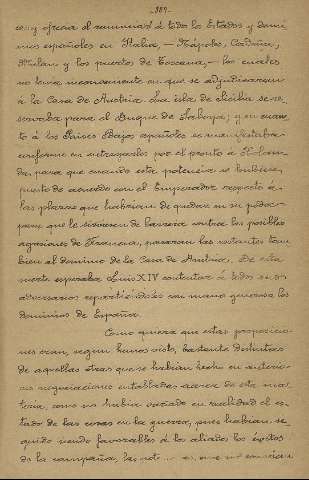 -387-
y ofrecía al renunciar á todos los Estados y domi-
nios españoles en Italia, — Nápoles, Cerdeña,
Milan y los puertos de Toscana, — los cuales
no tenía inconveniente en que se adjudicaran
á la Casa de Austria. La isla de Sicilia se re-
servaba para el Duque de Saboya, y en cuan-
to á los Países Bajos españoles se manifestaba
conforme en entregarlos por el pronto á Holan-
da, para que cuando esta potencia se hubiera
puesto de acuerdo con el Emperador respecto á
las plazas que habrían de quedar en su poder
para que le sirvieran de barrera contra las posibles
agresiones de Francia, pasaran las restantes tam-
bien al dominio de la Casa de Austria. De esta
suerte esperaba Luis XIV contentar á todos sus
adversarios repartiéndoles con mano generosa los
dominios de España.
Como quiera que estas proposicio-
nes eran, segun hemos visto, bastante distintas
de aquellas otras que se habían hecho en anterio-
res negociaciones entabladas acerca de esta ma-
teria, como no había variado en realidad el es-
tado de las cosas en la guerra, pues habían se-
guido siendo favorables á los aliados los éxitos
de la campaña, las que no